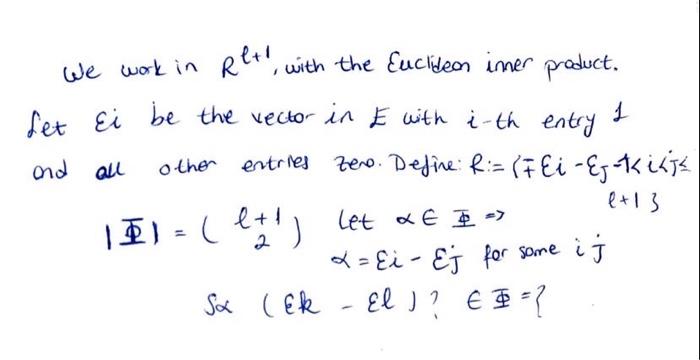 We work in R^{ℓ+1}, with the Euclidean inner product.
Let εi be the vector in E with i-th entry 1
and all other entries zero. Define: R:= {∓ εi - εj 1< i<j≤
ℓ+1 }
|Φ| = ( ℓ+1 2 ) Let α ∈ Φ =>
α = εi - εj for some i j
Sα ( εk - εl ) ? ∈ Φ = ?